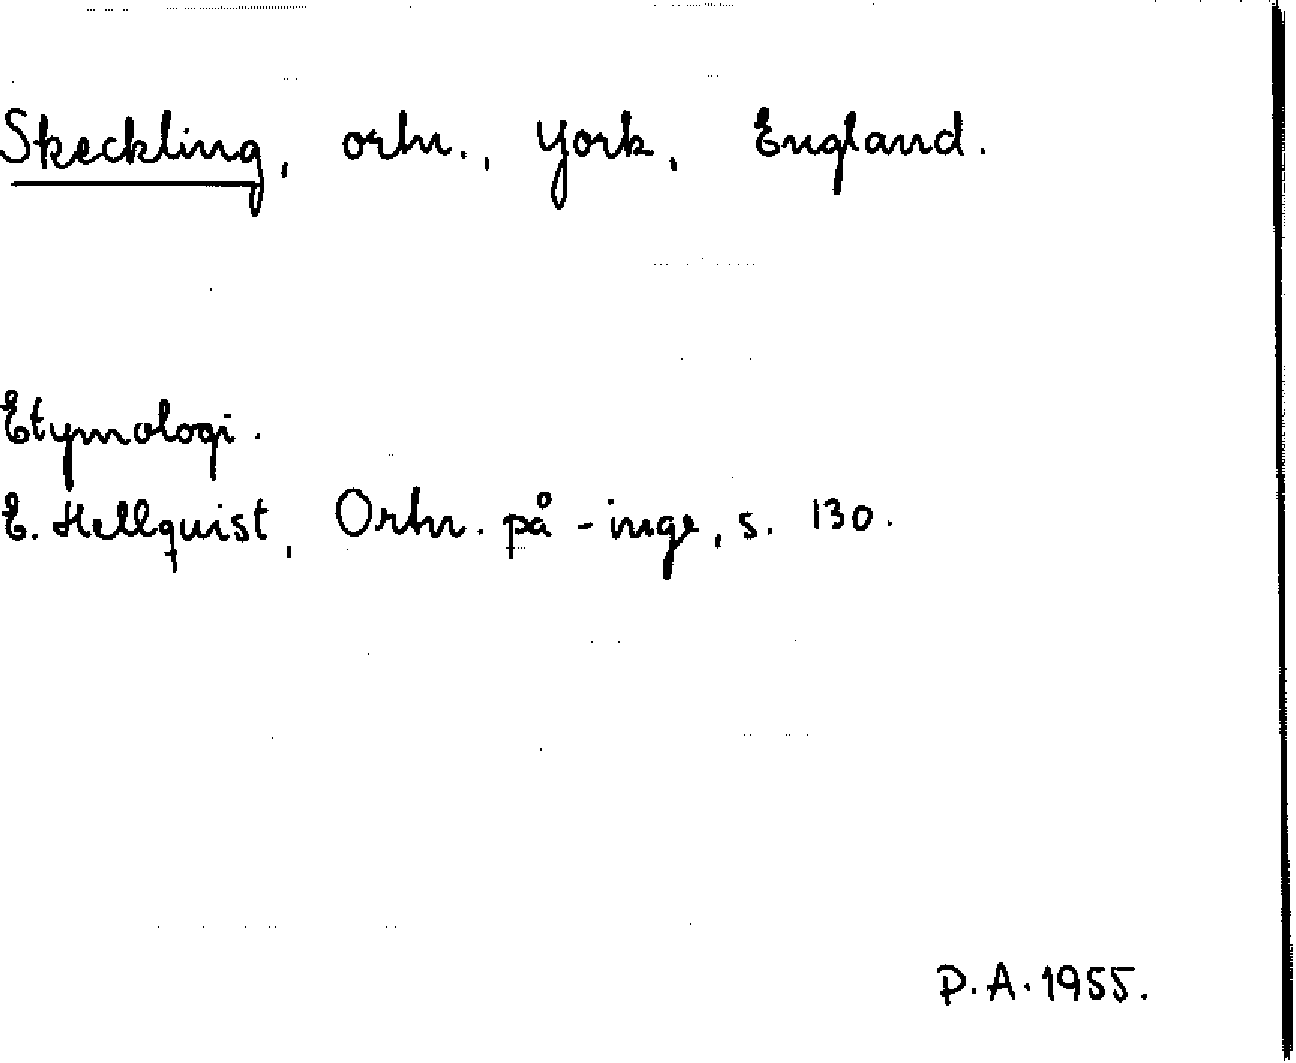 Skeckling, ortn., York, England.
Etymologi.
E. Hellquist, Ortn. på -inge, s. 130.
P.A. 1955.